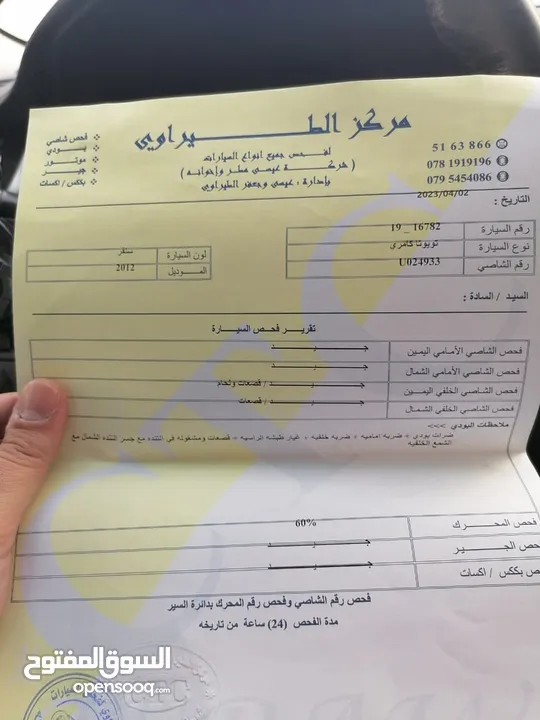 مركز الطـــيراوي
لفحص جميع انواع السيارات
( شركة عيسى مطر واخوانه )
بادارة : عيسى وجعفر الطيراوي
51 63 866
078 1919196
079 5454086
فحص شاصي
بودي
موتور
جير
بككس / اكسات
التاريخ : 2023/04/02
رقم السيارة 16782 _ 19
نوع السيارة تويوتا كامري
رقم الشاصي U024933
لون السيارة سلفر
الموديل 2012
السيد / السادة :
تقرير فحص السيارة
فحص الشاصي الأمامي اليمين جـــيـــد
فحص الشاصي الأمامي الشمال جـــيـــد
فحص الشاصي الخلفي اليمين جـــيـــد / قصعات ولحام
فحص الشاصي الخلفي الشمال جـــيـــد / قصعات
ملاحظات البودي >>>
ضربات بودي + ضربه اماميه + ضربه خلفيه + غيار طبشه الراسيه + قصعات ومشغوله في التنده مع جسر التنده الشمال مع
الشمع الخلفيه
فحص المحـــرك 60%
حص الجـــير جـــيـــد
ص بككس / اكسات جـــيـــد
فحص رقم الشاصي وفحص رقم المحرك بدائرة السير
مدة الفحص (24) ساعة من تاريخه
السوق المفتوح
opensooq.com
CTC